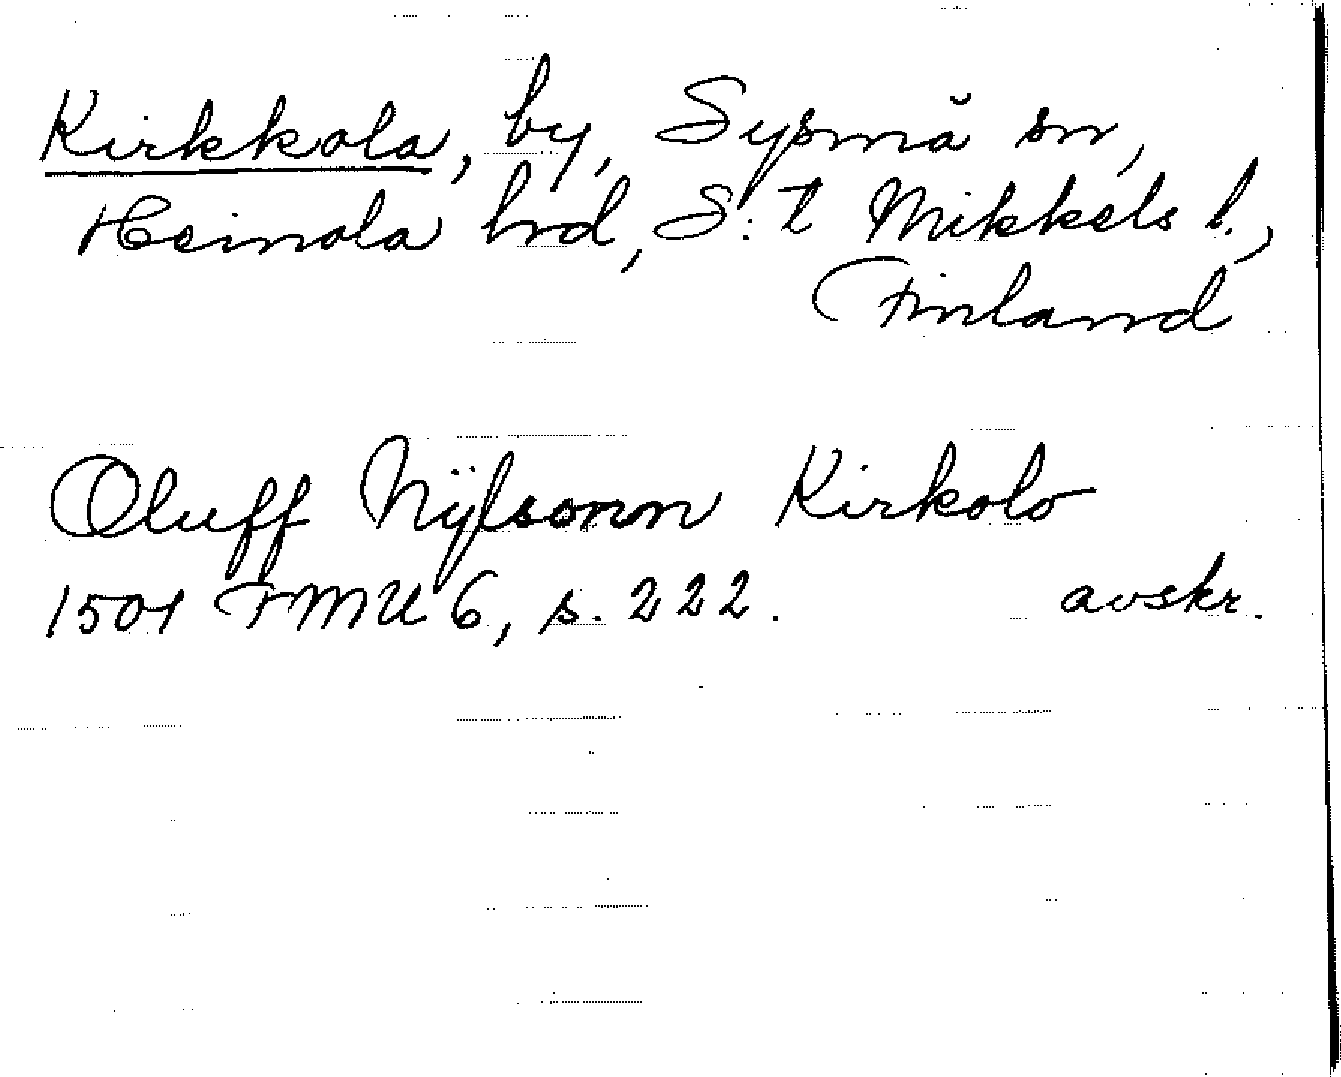 Kirkkola, by, Sysmä sn,
Heinola hrd, S:t Mikkels l.,
Finland
Oluff Nÿlsonn Kirkolo
1507 FMU 6, s. 222. avskr.